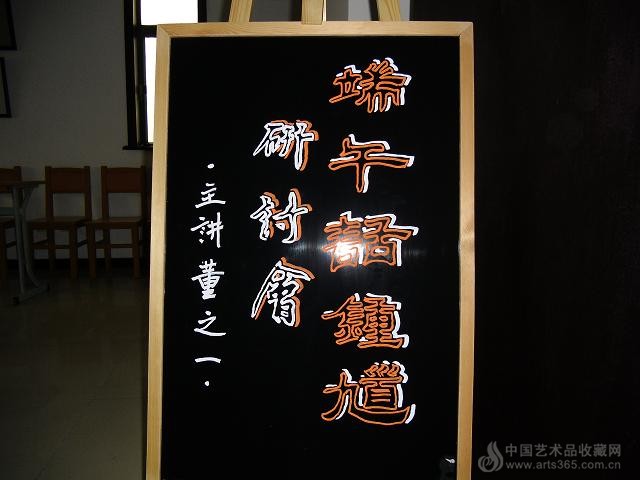 端午話鍾馗
研討會
·主讲董之一·
中国艺术品收藏网
www.arts365.com.cn